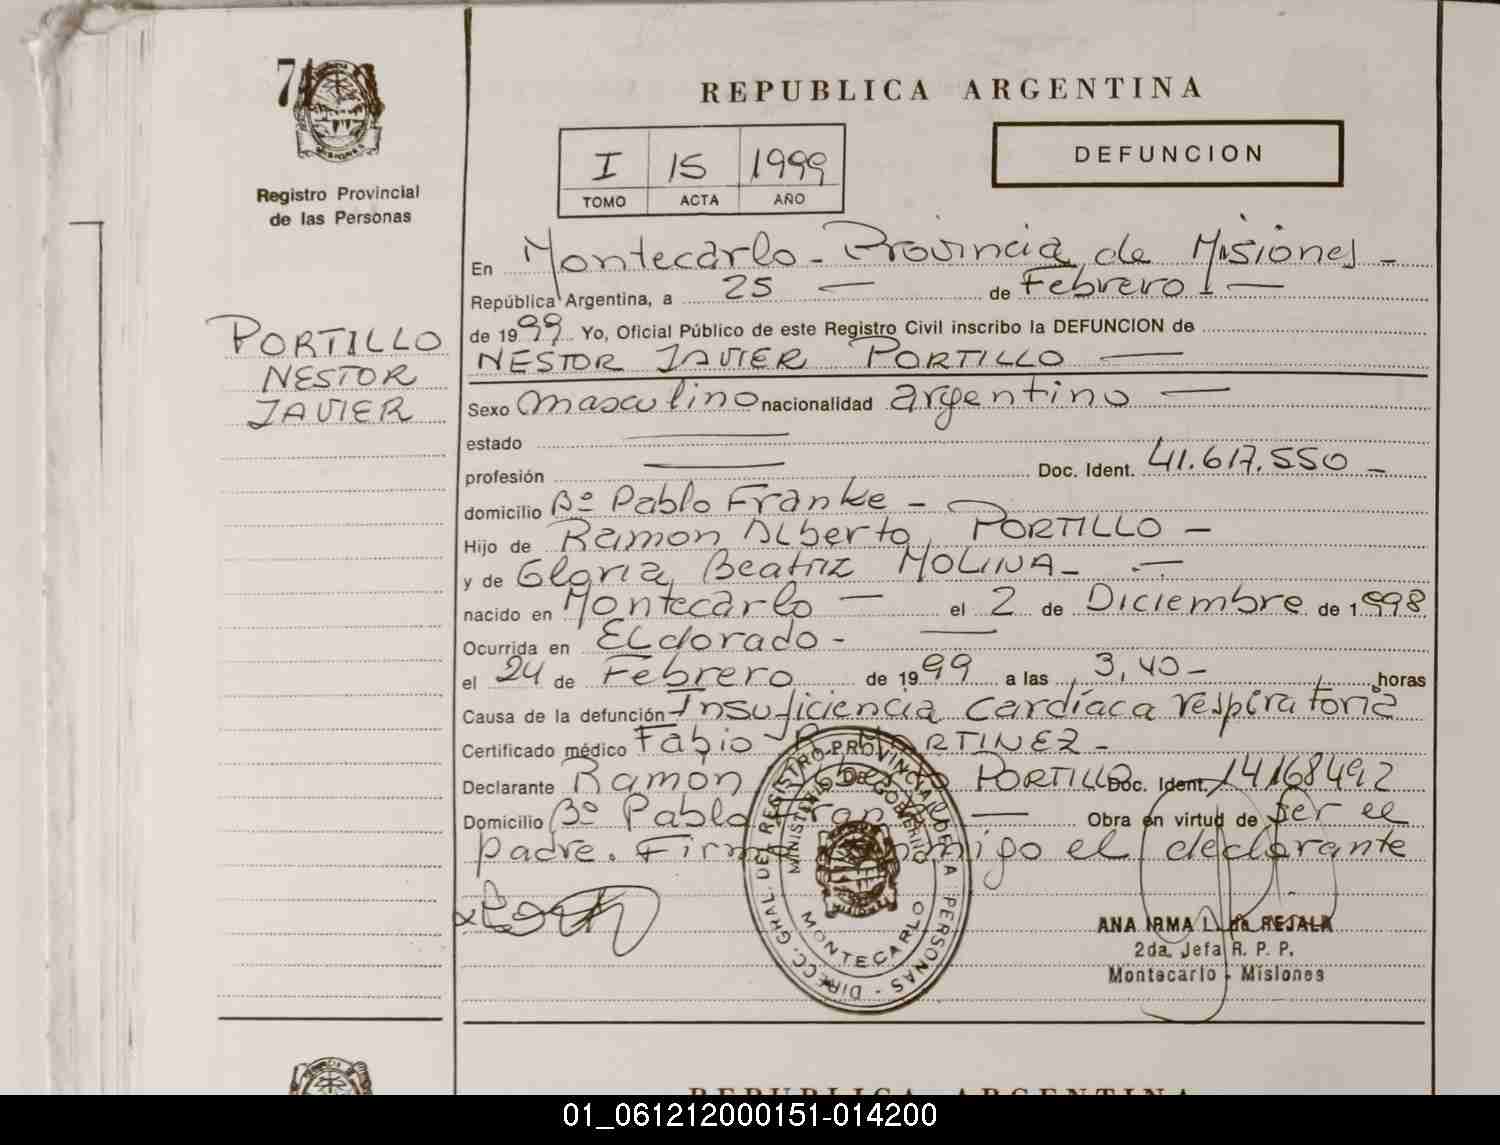 7
Registro Provincial
de las Personas
PORTILLO
NESTOR
JAVIER
REPUBLICA ARGENTINA
I 15 1999
TOMO ACTA AÑO
DEFUNCION
En Montecarlo - Provincia de Misiones -
República Argentina, a 25 — de Febrero —
de 1999 Yo, Oficial Público de este Registro Civil inscribo la DEFUNCION de
NESTOR JAVIER PORTILLO —
Sexo masculino nacionalidad argentino —
estado —
profesión — Doc. Ident. 41.617.550 -
domicilio Bº Pablo Franke -
Hijo de Ramon Alberto PORTILLO -
y de Gloria Beatriz MOLINA - —
nacido en Montecarlo — el 2 de Diciembre de 1998
Ocurrida en Eldorado - —
el 24 de Febrero de 1999 a las 3,40 - horas
Causa de la defunción Insuficiencia cardíaca respiratoria
Certificado médico Fabio R. MARTINEZ -
Declarante Ramón Alberto PORTILLO Doc. Ident. 14168492
Domicilio Bº Pablo Franke — Obra en virtud de ser el
padre. Firma conmigo el declarante
DIRECC. GRAL. DEL REGISTRO PROVINCIAL DE LA PERSONAS -
MINISTERIO DE GOBIERNO
MONTECARLO
ANA IRMA L. de REJALA
2da. Jefa R. P. P.
Montecarlo - Misiones
REPUBLICA ARGENTINA
01_061212000151-014200